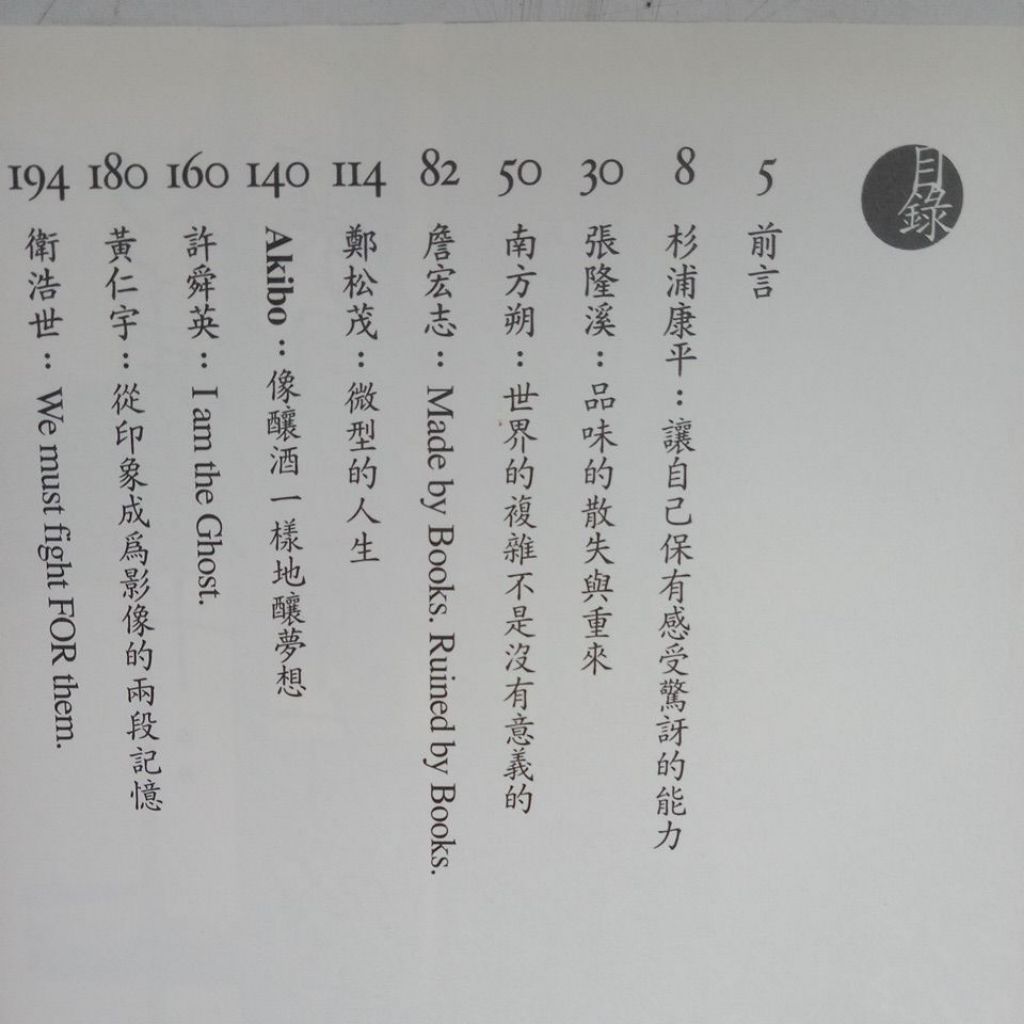 目錄
5 前言
8 杉浦康平：讓自己保有感受驚訝的能力
30 張隆溪：品味的散失與重來
50 南方朔：世界的複雜不是沒有意義的
82 詹宏志：Made by Books. Ruined by Books.
114 鄭松茂：微型的人生
140 Akibo：像釀酒一樣地釀夢想
160 許舜英：I am the Ghost.
180 黃仁宇：從印象成爲影像的兩段記憶
194 衛浩世：We must fight FOR them.